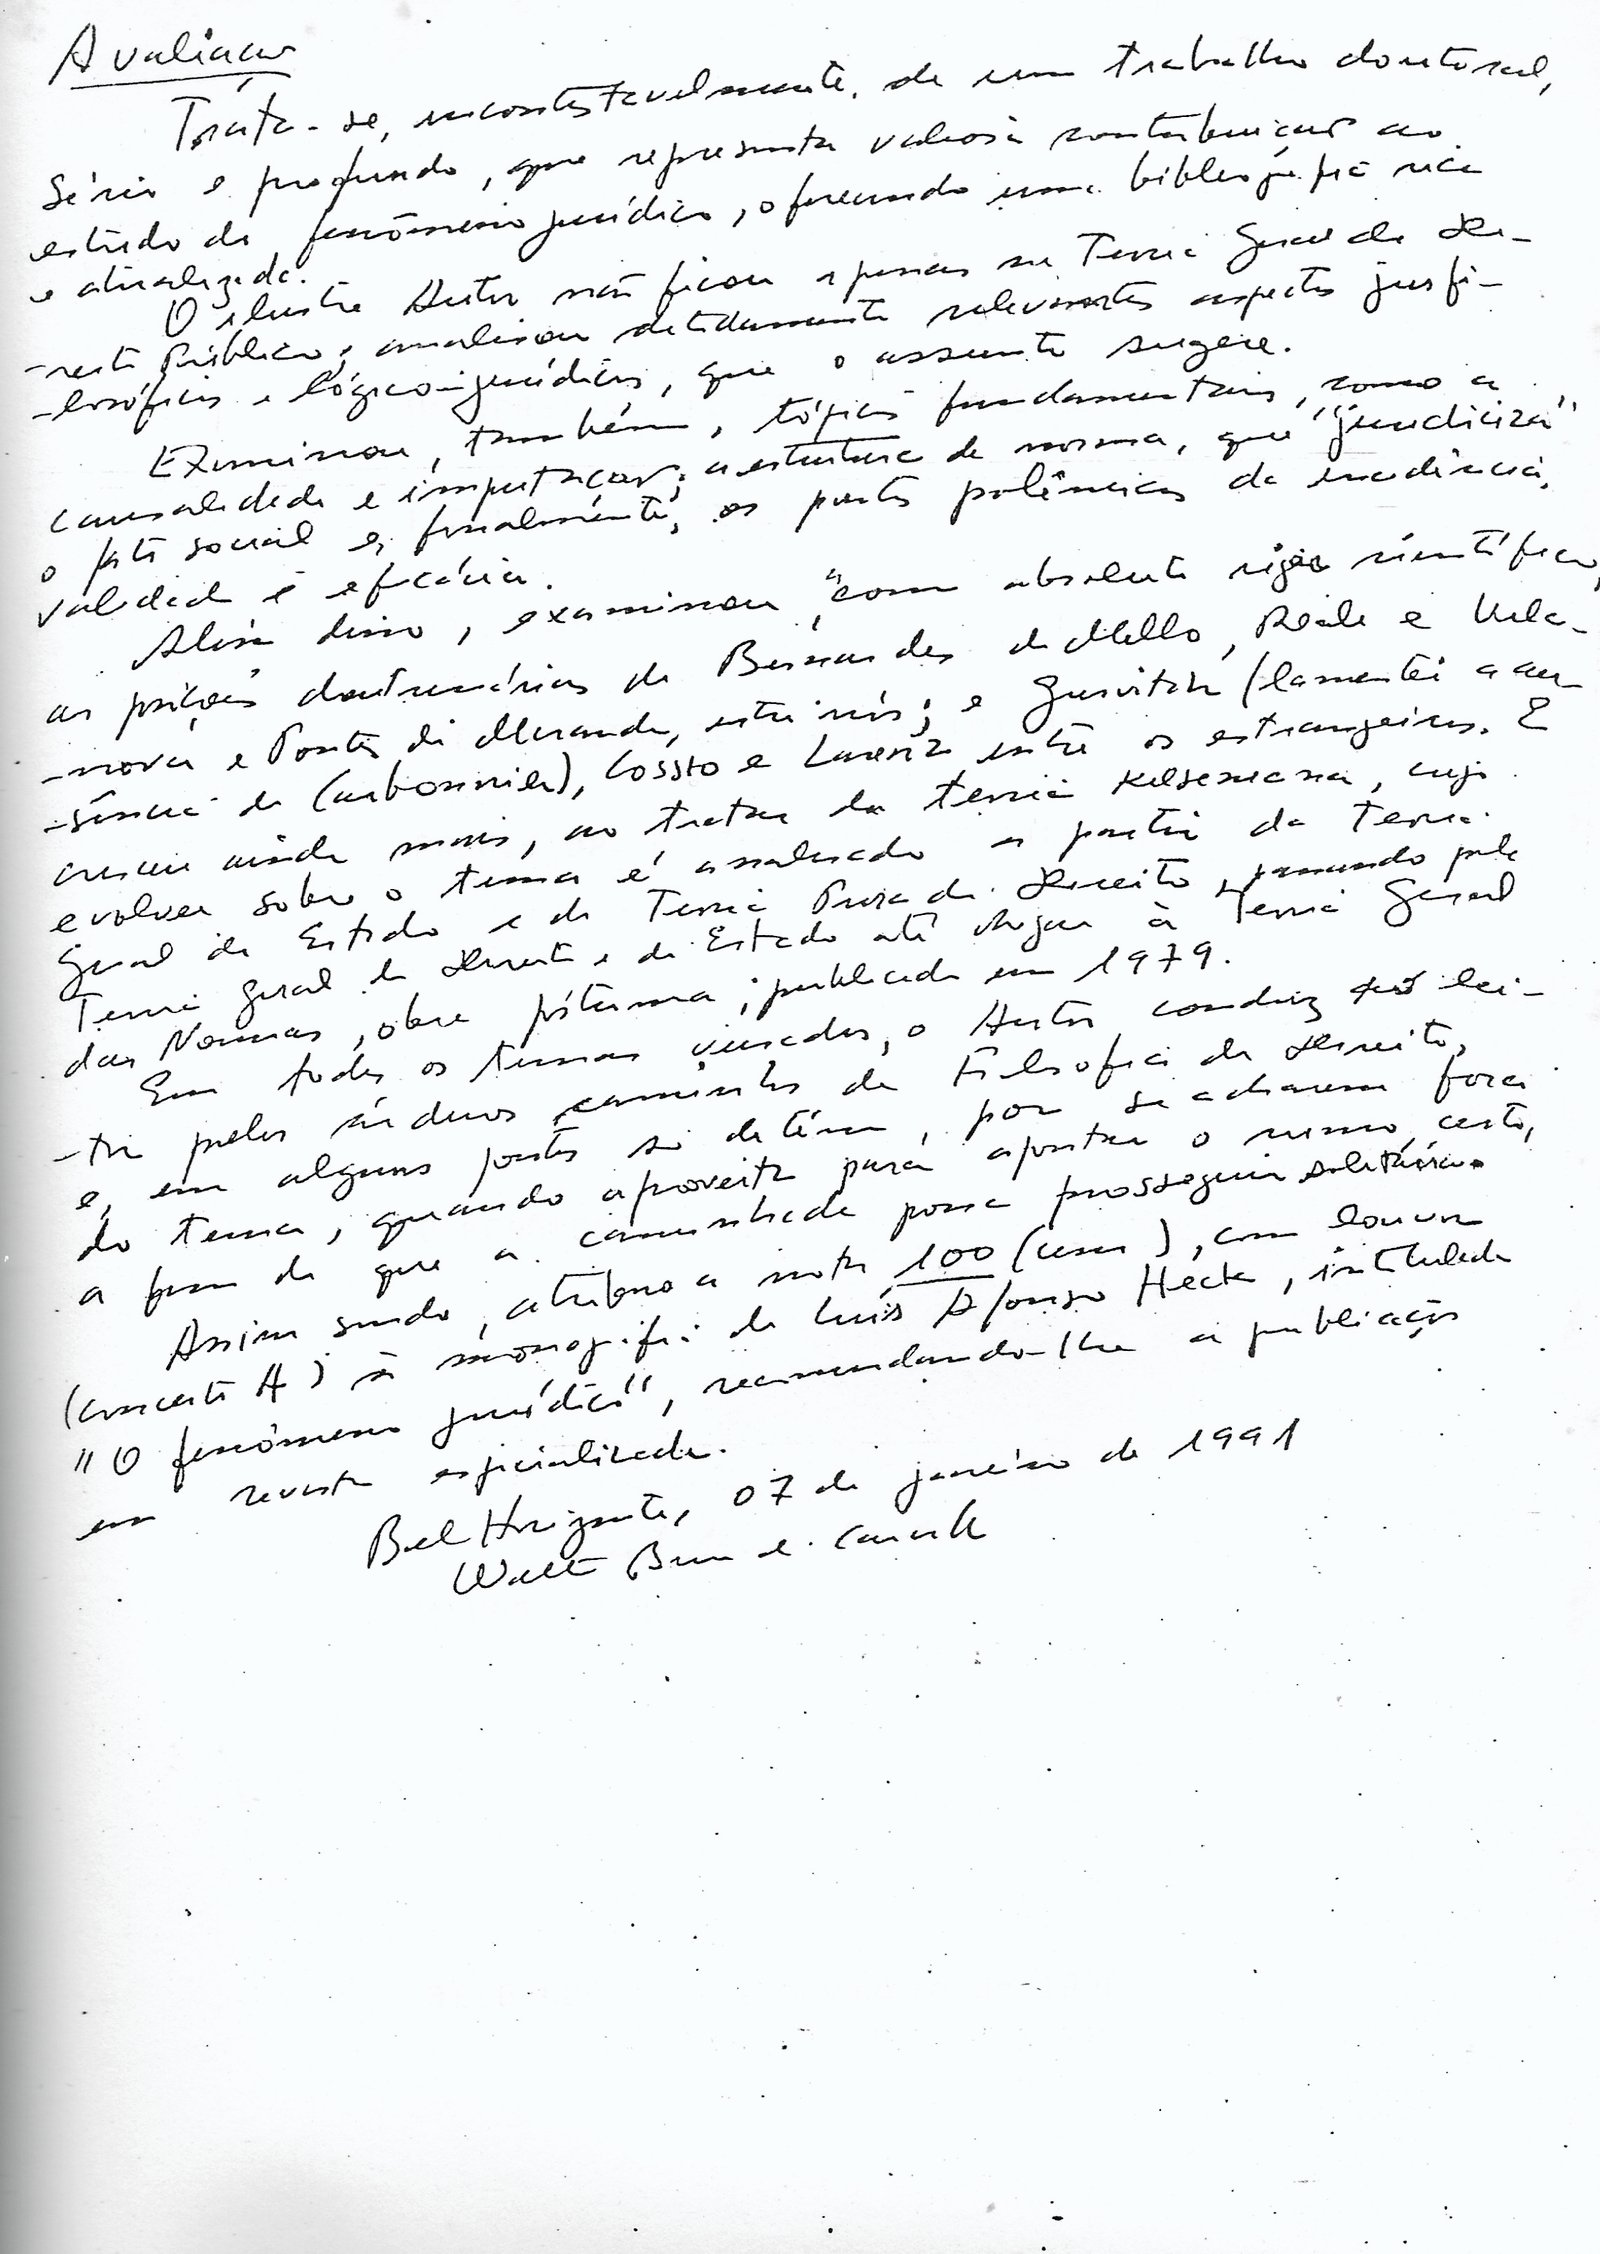 Avaliação
Trata-se, incontestavelmente, de um trabalho doutoral,
sério e profundo, que representa valiosa contribuição ao
estudo do fenômeno jurídico, oferecendo uma bibliografia rica
e atualizada.
O ilustre Autor não ficou apenas na Teoria Geral do Di-
-reito Público; analisou detidamente relevantes aspectos jusfi-
-losóficos e lógico-jurídicos, que o assunto sugere.
Examinou, também, tópicos fundamentais, como a
causalidade e imputação; a estrutura da norma, que "juridiciza"
o fato social e, finalmente, os pontos polêmicos da incidência,
validade e eficácia.
Além disso, examinou, com absoluto rigor científico,
as posições doutrinárias de Bernardes de Mello, Reale e Vila-
-nova e Pontes de Miranda, entre nós; e Gurvitch (lamentei a au-
-sência de Carbonnier), Cossio e Larenz entre os estrangeiros. E
cresceu ainda mais, ao tratar da teoria kelseniana, cujo
evolver sobre o tema é analisado a partir da Teoria
Geral do Estado e da Teoria Pura do Direito, passando pela
Teoria Geral do Direito e do Estado até chegar à Teoria Geral
das Normas, obra póstuma, publicada em 1979.
Em todos os temas versados, o Autor conduz seu lei-
-tor pelos árduos caminhos da Filosofia do Direito,
e, em alguns pontos se detém, por se acharem fora
do tema, quando aproveita para apontar o rumo certo,
a fim de que a caminhada possa prosseguir solitária.
Assim sendo, atribuo a nota 100 (cem), com louvor
(conceito A) à monografia de Luís Afonso Heck, intitulada
"O fenômeno jurídico", recomendando-lhe a publicação
em revista especializada.
Belo Horizonte, 07 de janeiro de 1991